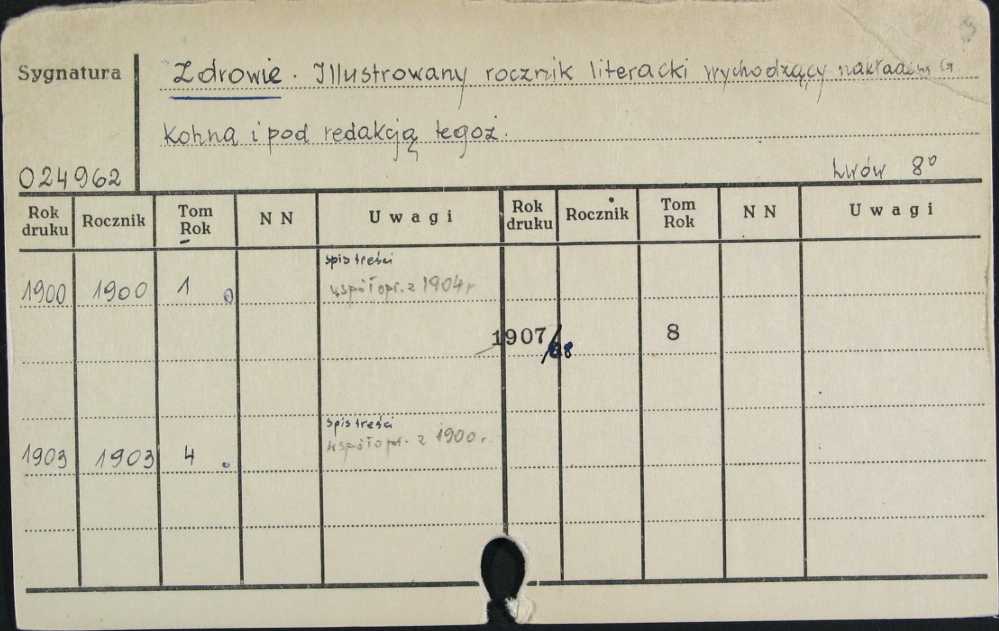 Sygnatura
Zdrowie. Illustrowany rocznik literacki wychodzący nakładem
Kohna i pod redakcją tegoż.
024962
Lwów 8°
Rok druku Rocznik Tom Rok NN Uwagi Rok druku Rocznik Tom Rok NN Uwagi
spis treści
1900 1900 1 współopr. z 1904 r
1907/08 8
spis treści
1903 1903 4 współopr. z 1900 r.